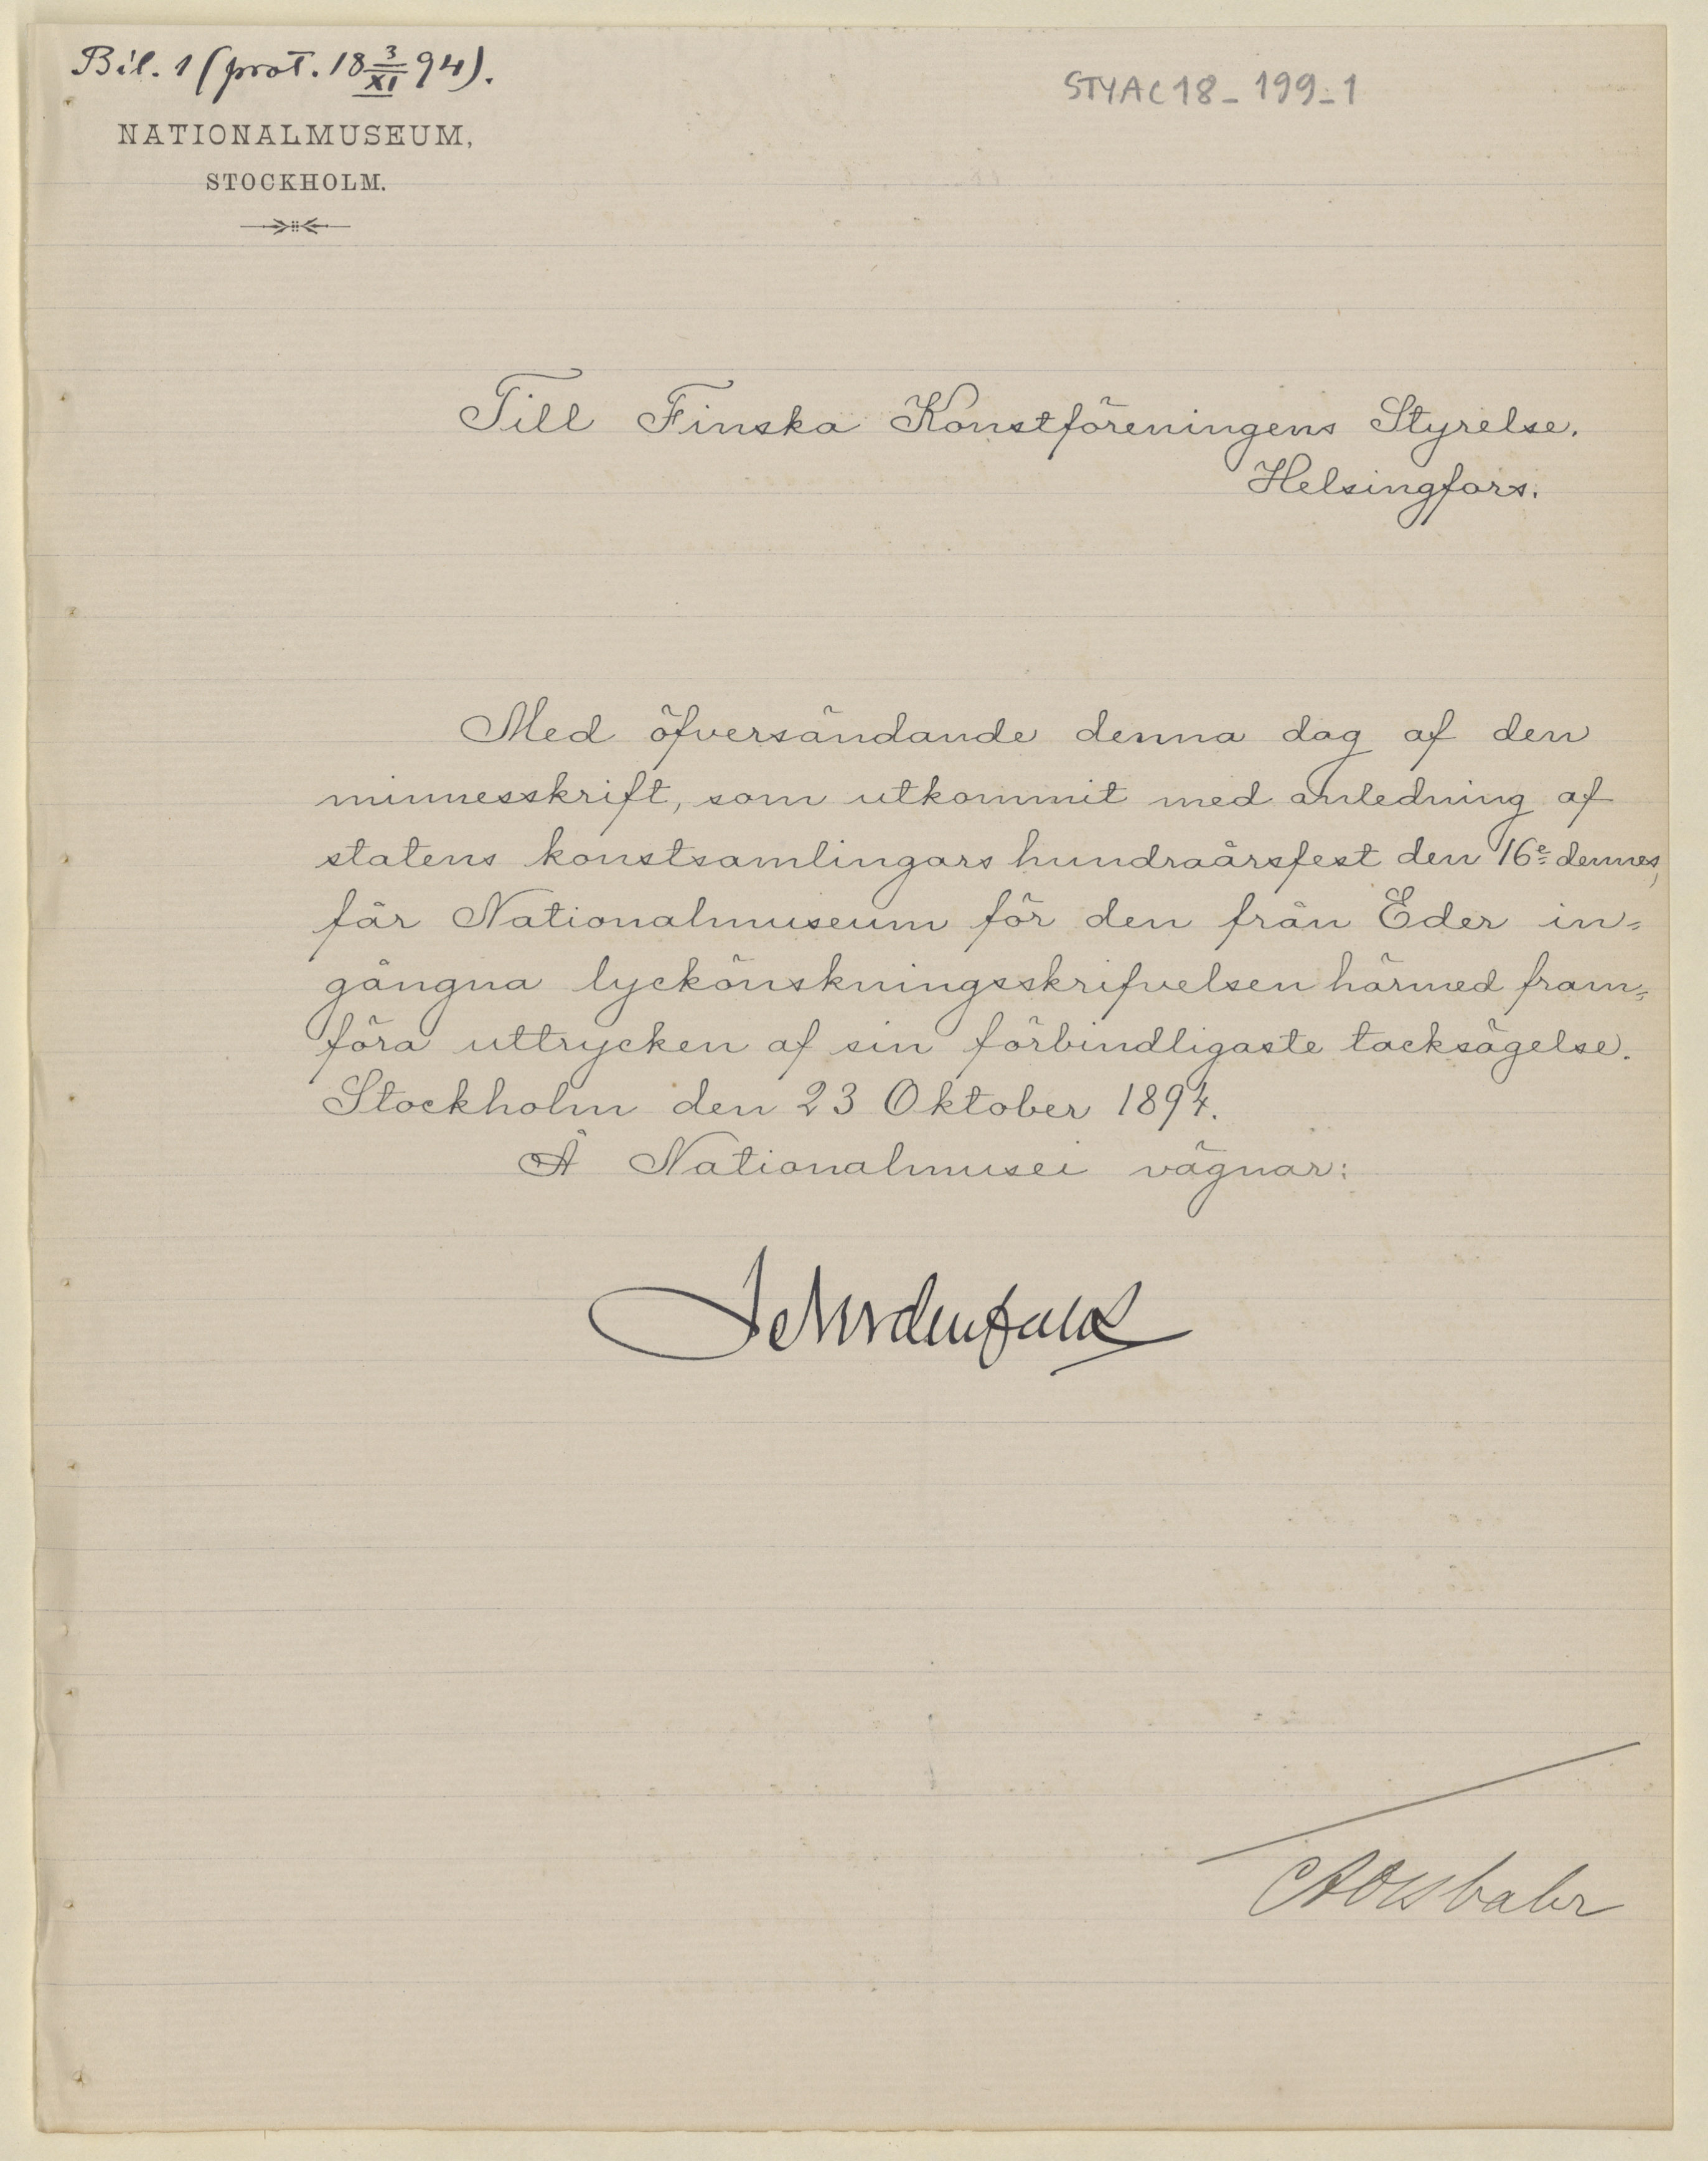 Bil. 1 (prot. 18 3/XI 94).
STYAC18_199_1
NATIONALMUSEUM,
STOCKHOLM.
Till Finska Konstföreningens Styrelse.
Helsingfors.
Med öfversändande denna dag af den
minnesskrift, som utkommit med anledning af
statens konstsamlingars hundraårsfest den 16e dennes,
får Nationalmuseum för den från Eder in-
gångna lyckönskningsskrifvelsen härmed fram-
föra uttrycken af sin förbindligaste tacksägelse.
Stockholm den 23 Oktober 1894.
Å Nationalmusei vägnar: